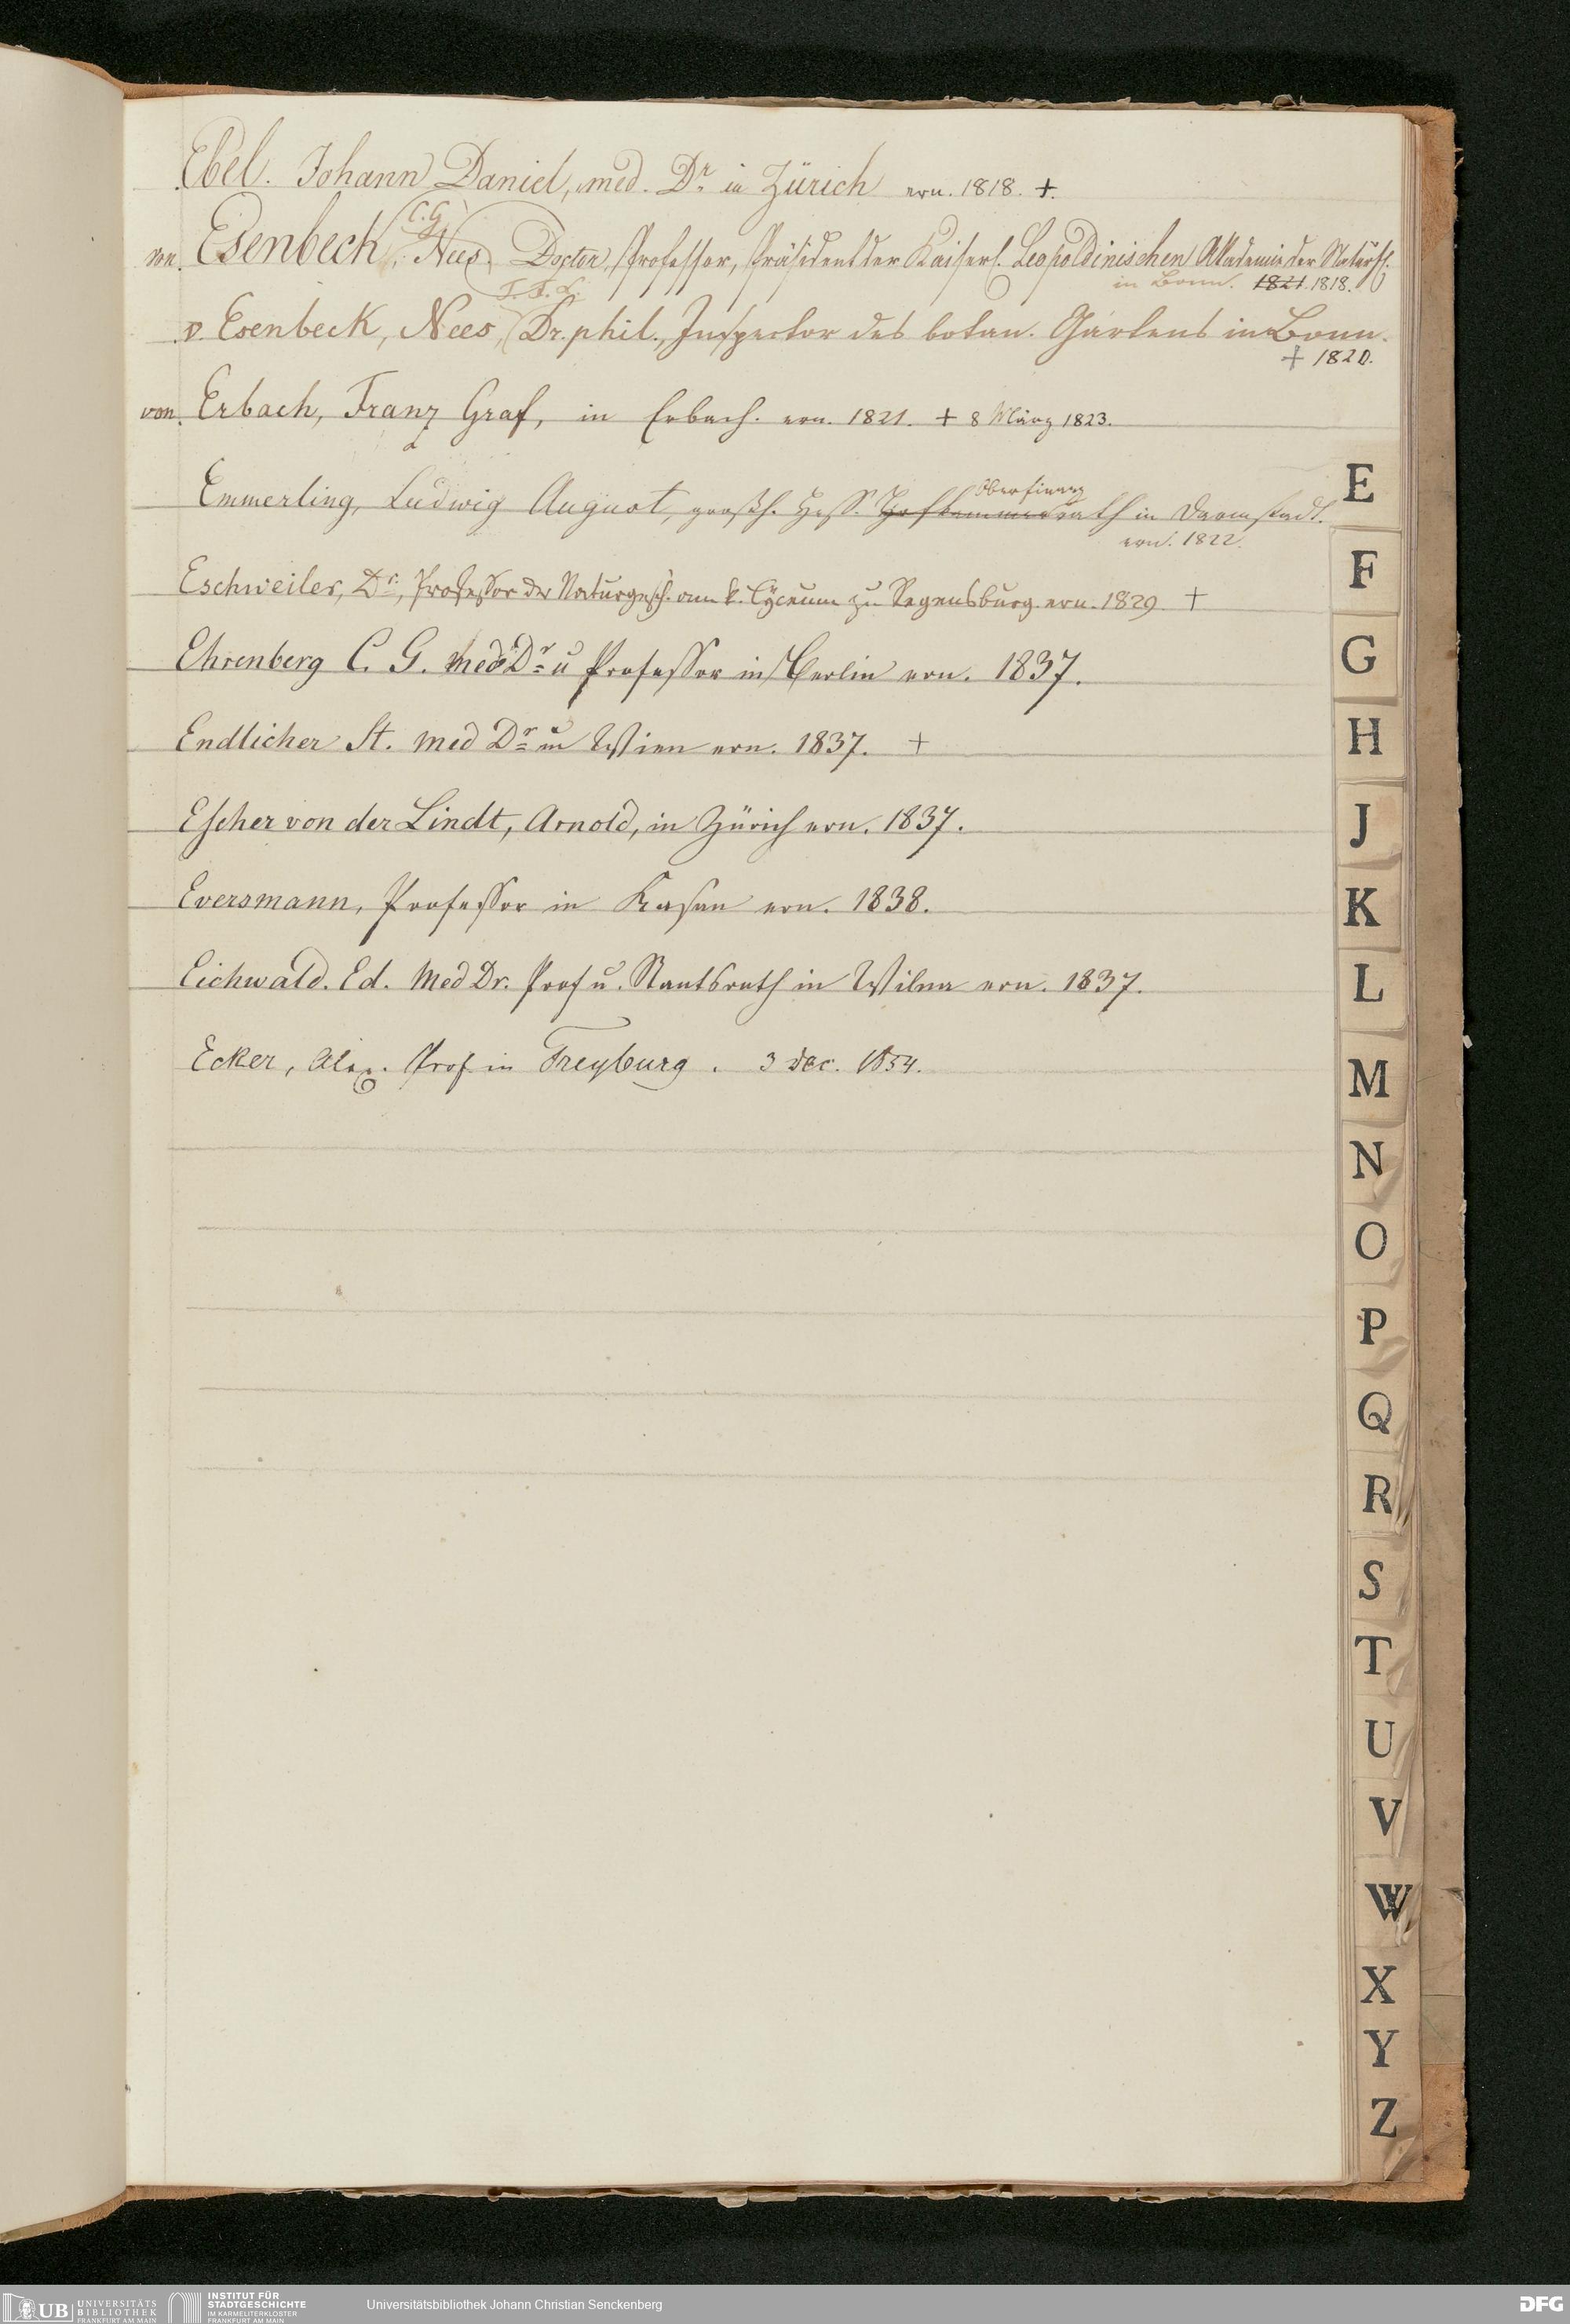 Ebel. Johann Daniel, med. Dr. in Zürich ern. 1818. +.
C. G.
von Esenbeck, Nees, Doctor, Professor, Präsident der Kaiserl. Leopoldinischen Akademie der Naturf.
in Bonn. 1821. 1818.
v. Esenbeck, Nees, Dr. phil., Inspector des botan. Gartens in Bonn.
+ 1820.
von Erbach, Franz Graf, in Erbach. ern. 1821. + 8 März 1823.
Oberfinanz
Emmerling, Ludwig August, großh. Hess. Hofkammerrath in Darmstadt.
ern. 1822.
Eschweiler, Dr., Professor der Naturgesch. am k. Lyceum zu Regensburg ern. 1829 +
Ehrenberg C. G. Med Dr u Professor in Berlin ern. 1837.
Endlicher St. Med Dr in Wien ern. 1837. +
Escher von der Lindt, Arnold, in Zürich ern. 1837.
Eversmann, Professor in Kasan ern. 1838.
Eichwald. Ed. Med Dr. Prof u. Staatsrath in Wilna ern. 1837.
Ecker, Alex. Prof in Freyburg. 3 Dec. 1854.
E
F
G
H
J
K
L
M
N
O
P
Q
R
S
T
U
V
W
X
Y
Z
UB UNIVERSITÄTS
BIBLIOTHEK
FRANKFURT AM MAIN
INSTITUT FÜR
STADTGESCHICHTE
IM KARMELITERKLOSTER
FRANKFURT AM MAIN
Universitätsbibliothek Johann Christian Senckenberg
DFG